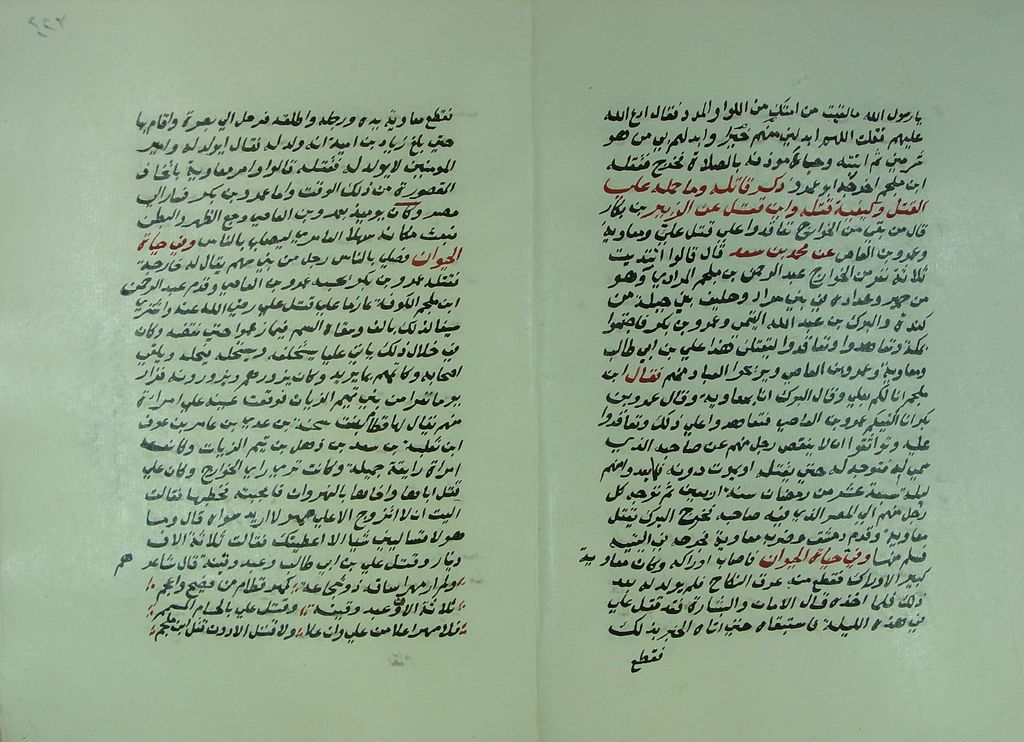 يا رسول الله ما لقيت من امتك من اللوا واللدد فقال ادع الله
عليهم فقلت اللهم ابدلني منهم خيرا وابدلهم بي من هو
شر مني ثم انتبه وجاء مؤذنه بالصلاة فخرج فقتله
ابن ملجم اخرجه ابو عمر ذكر قاتله وما حمله على
القتل وكيفية قتله واين قتل عن الزبير بن بكار
قال من بقى من الخوارج تعاقدوا على قتل علي ومعاوية
وعمرو بن العاص عن محمد بن سعد قال قالوا انتدبت
ثلاثة نفر من الخوارج عبد الرحمن بن ملجم المرادي وهو
من حمير وعداده في بني مراد وحليف بني جبلة من
كندة والبرك بن عبد الله التميمي وعمرو بن بكر فاجتمعوا
بمكة وتعاهدوا وتعاقدوا ليقتلن هذا علي بن ابي طالب
ومعاوية وعمرو بن العاص ويريحوا العباد منهم فقال ابن
ملجم انا لكم بعلي وقال البرك انا بمعاوية وقال عمرو بن
بكر انا اكفيكم عمرو بن العاص فتعاهدوا على ذلك وتعاقدوا
عليه وتواثقوا ان لا ينقض رجل منهم عن صاحبه الذي
سمي له فتوجه له حتى يقتله او يموت دونه فاتعدوا بينهم
ليلة سبعة عشر من رمضان سنة اربعين ثم توجه كل
رجل منهم الى المصر الذي فيه صاحبه فخرج البرك لقتل
معاوية وقدم دمشق وضرب معاوية فجرحه في اليته
فسلم منها وفي حياة الحيوان فاصاب اوراكه وكان معاوية
كبير الاوراك فقطع منه عرق النكاح فلم يولد له بعد
ذلك فلما اخذه قال الامان والبشارة فقد قتل علي
في هذه الليلة فاستبقاه حتى اتاه الخبر بذلك
فقطع
فقطع معاوية يده ورجله واطلقه فرحل الى بصرة واقام بها
حتى بلغ زياد بن امية انه ولد له فقال ايولد له وامير
المومنين لا يولد له فقتله قالوا وامر معاوية باتخاذ
المقصورة من ذلك الوقت واما عمرو بن بكر فسار الى
مصر وكان يومئذ بعمرو بن العاص وجع الظهر والبطن
فبعث مكانه سهلا العامري ليصلي بالناس وفي حياة
الحيوان فصلى بالناس رجل من بني سهم يقال له خارجة
فقتله عمرو بن بكر يحسبه عمرو بن العاص وقدم عبد الرحمن
ابن ملجم الكوفة عازما على قتل علي رضي الله عنه واشترى
سيفا لذلك بالف وسقاه السم فيما زعموا حتى نفضه وكان
في خلال ذلك ياتي عليا يستحمله وسيحمله فيحمله ويلقى
اصحابه وكاتمهم ما يريد وكان يزورهم ويزورونه فزار
يوما نفرا من بني تيم الرباب فوقعت عينه على امراة
منهم يقال لها قطام بنت سخبة بن عدي بن عامر بن عوف
ابن ثعلبة بن سعد بن ذهل بن تيم الرباب وكانت
امراة رايقة جميلة وكانت ترى راى الخوارج وكان علي
قتل اباها واخاها بالنهروان فاعجبته فخطبها فقالت
اليت ان لا اتزوج الا على مهر لا اريد سواه قال وما
هو لا تساليني شيا الا اعطيتك فقالت ثلاثة الاف
دينار وقتل علي بن ابي طالب وعبد وقينة قال شاعرهم
ولم ار مهرا ساقه ذو شجاعة كمهر قطام من فصيح واعجم
ثلاثة الاف وعبد وقينة وقتل علي بالحسام المسمم
فلا مهر اعلا من علي وان علا ولا قتل الا دون قتل ابن ملجم